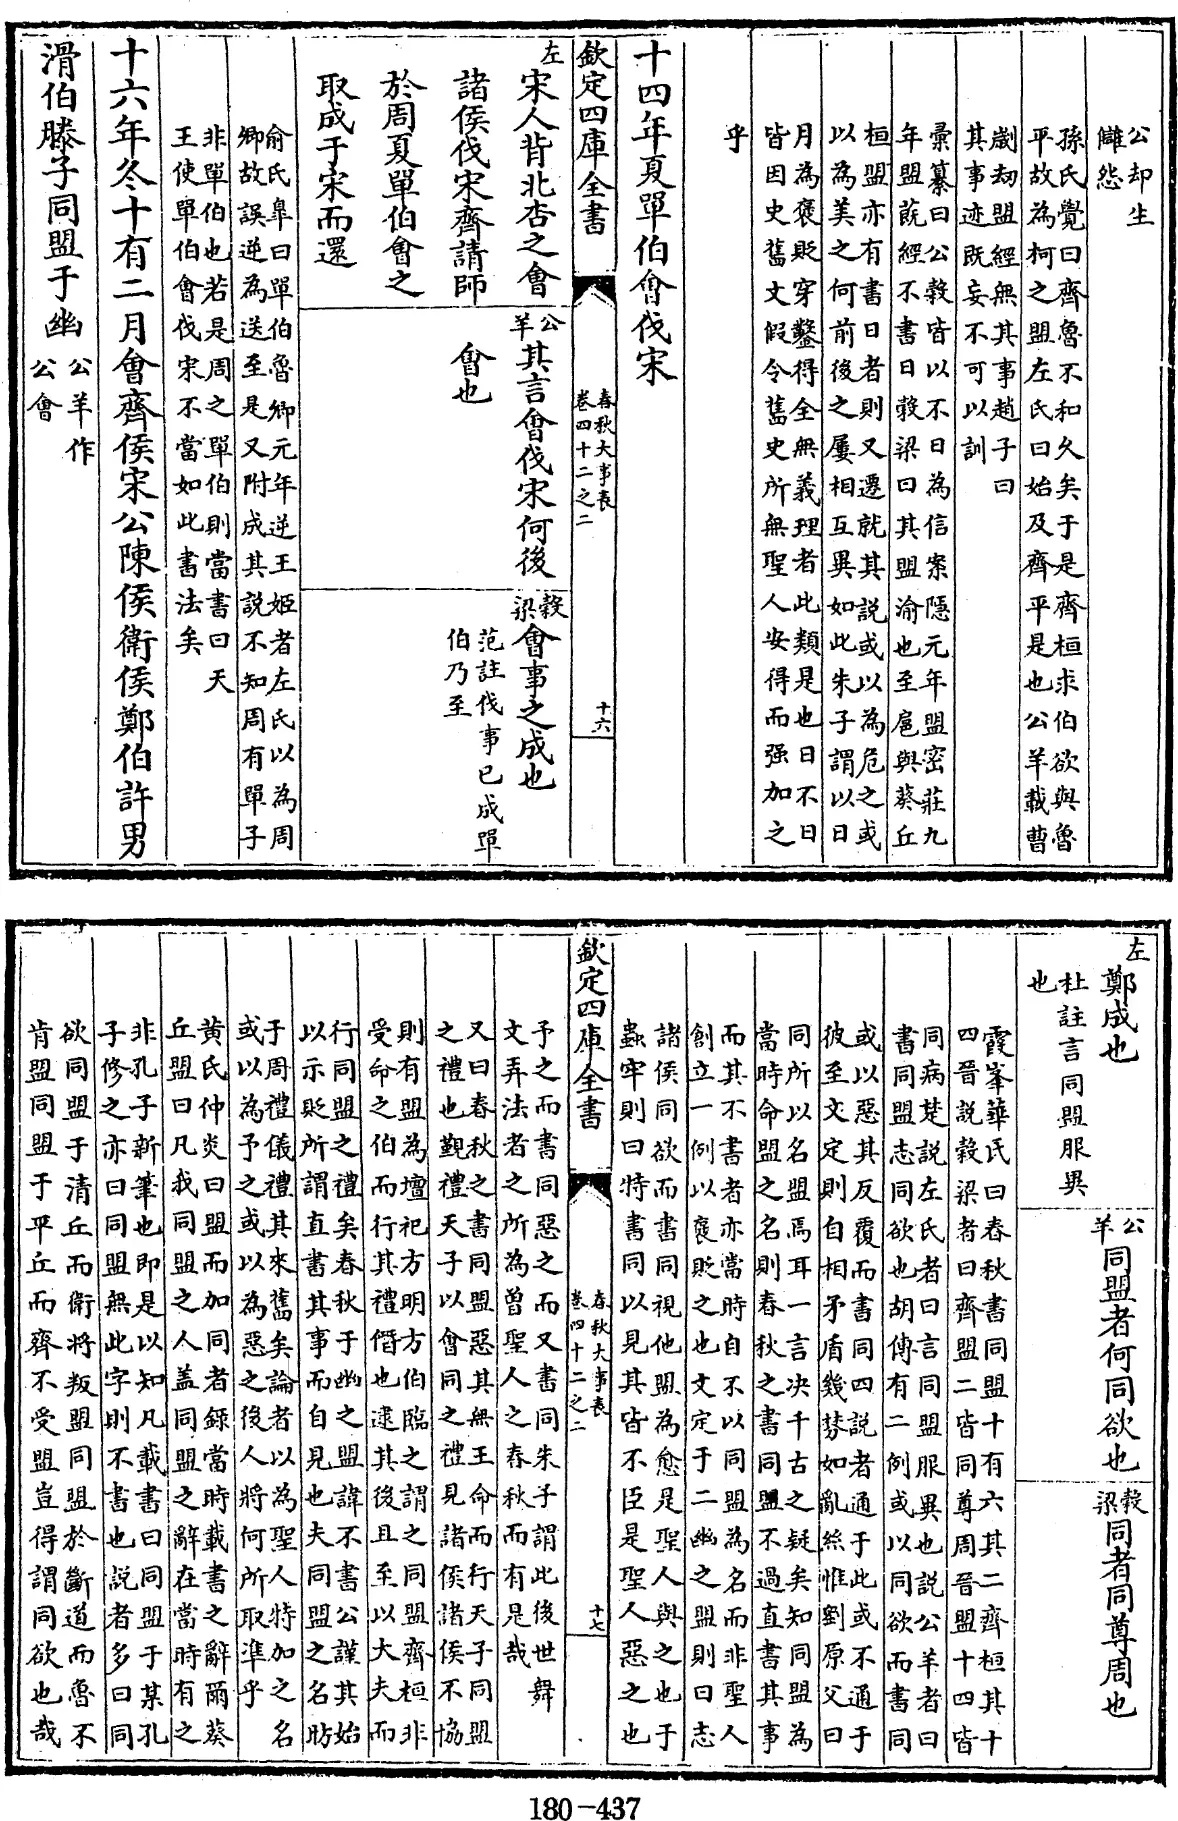 公却生
讎怨
孫氏覺曰齊魯不和久矣于是齊桓求伯欲與魯
平故為柯之盟左氏曰始及齊平是也公羊載曹
歲劫盟經無其事趙子曰
其事迹既妄不可以訓
彙纂曰公穀皆以不日為信案隱元年盟密莊九
年盟蔇經不書日穀梁曰其盟渝也至扈與葵丘
桓盟亦有書日者則又遷就其説或以為危之或
以為美之何前後之屢相互異如此朱子謂以日
月為褒貶穿鑿得全無義理者此類是也日不日
皆因史舊文假令舊史所無聖人安得而强加之
乎
十四年夏單伯會伐宋
欽定四庫全書
春秋大事表
卷四十二之二
十六
左
宋人背北杏之會
諸侯伐宋齊請師
於周夏單伯會之
取成于宋而還
公羊
其言會伐宋何後
會也
穀梁
會事之成也
范註伐事已成單
伯乃至
俞氏皐曰單伯魯卿元年逆王姬者左氏以為周
卿故誤逆為送至是又附成其説不知周有單子
非單伯也若是周之單伯則當書曰天
王使單伯會伐宋不當如此書法矣
十六年冬十有二月會齊侯宋公陳侯衛侯鄭伯許男
滑伯滕子同盟于幽
公羊作
公會
左
鄭成也
杜註言同盟服異
也
公羊
同盟者何同欲也
穀梁
同者同尊周也
霞峯華氏曰春秋書同盟十有六其二齊桓其十
四晉説穀梁者曰齊盟二皆同尊周晉盟十四皆
同病楚説左氏者曰言同盟服異也説公羊者曰
書同盟志同欲也胡傳有二例或以同欲而書同
或以惡其反覆而書同四説者通于此或不通于
彼至文定則自相矛盾幾棼如亂絲惟劉原父曰
同所以名盟焉耳一言决千古之疑矣知同盟為
當時命盟之名則春秋之書同盟不過直書其事
而其不書者亦當時自不以同盟為名而非聖人
創立一例以襃貶之也文定于二幽之盟則曰志
諸侯同欲而書同視他盟為愈是聖人與之也于
蟲牢則曰特書同以見其皆不臣是聖人惡之也
欽定四庫全書
春秋大事表
卷四十二之二
十七
予之而書同惡之而又書同朱子謂此後世舞
文弄法者之所為曾聖人之春秋而有是哉
又曰春秋之書同盟惡其無王命而行天子同盟
之禮也觐禮天子以會同之禮見諸侯諸侯不協
則有盟為壇祀方明方伯臨之謂之同盟齊桓非
受命之伯而行其禮僭也逮其後且至以大夫而
行同盟之禮矣春秋于幽之盟諱不書公謹其始
以示貶所謂直書其事而自見也夫同盟之名昉
于周禮儀禮其來舊矣論者以為聖人特加之名
或以為予之或以為惡之後人將何所取準乎
黄氏仲炎曰盟而加同者録當時載書之辭爾葵
丘盟曰凡我同盟之人盖同盟之辭在當時有之
非孔子新筆也即是以知凡載書曰同盟于某孔
子修之亦曰同盟無此字則不書也説者多曰同
欲同盟于清丘而衛將叛盟同盟於斷道而魯不
肯盟同盟于平丘而齊不受盟豈得謂同欲也哉
180-437